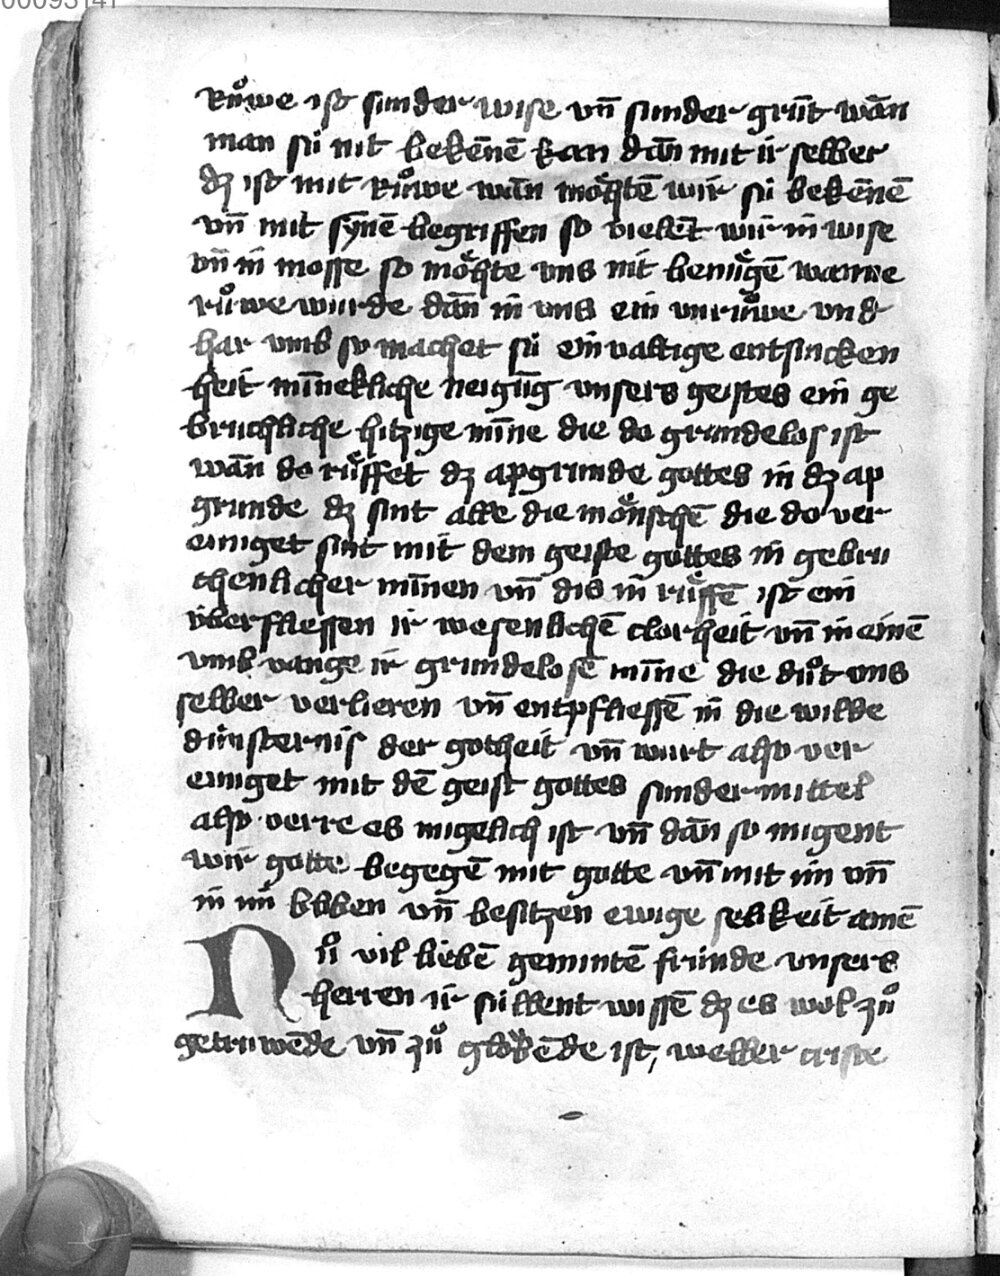 00093141
Ruͦwe ist sunder wise vn̄ sunder grūt wān
man sú nit bekēnē kan dān mit ir selber
dz ist mit Ruͦwe wān moͤhtē wir sú bekēnē
vn̄ mit synē begriffen so vielēt wir in wise
vn̄ in mosse so moͤhte vns nit benuͤgē wanne
ruͦwe wurde dān in vns ein vnruͦwe vnd
har vmb so machet sú einvaltige entsincken
heit mīnekliche neigūg vnsers geistes ein ge
bruchliche hitzige mīne die do grundelos ist
wān do ruͤffet dz apgrunde gottes in dz ap
grunde dz sint alle die moͤnschē die do ver
einiget sint mit dem geiste gottes in gebru
chenlicher mīnen vn̄ dis in ruͤffē ist ein
úberfliessen ir wesenlichē clorheit vn̄ in einē
vmb vange ir grundelosē mīne die duͦt vns
selber verlieren vn̄ entpfliessē in die wilde
dúnsternis der gotheit vn̄ wurt also ver
einiget mit dē geist gottes sunder mittel
also verre es migelich ist vn̄ dān so migent
wir gotte begegē mit gotte vn̄ mit im vn̄
in im̄ bliben vn̄ besitzen ewige selikeit amē
Nū vil liebē gemintē frúnde vnsers
herren ir súllent wissē dz es wol zuͦ
getruwēde vn̄ zuͦ gloͮbēde ist, weller criste